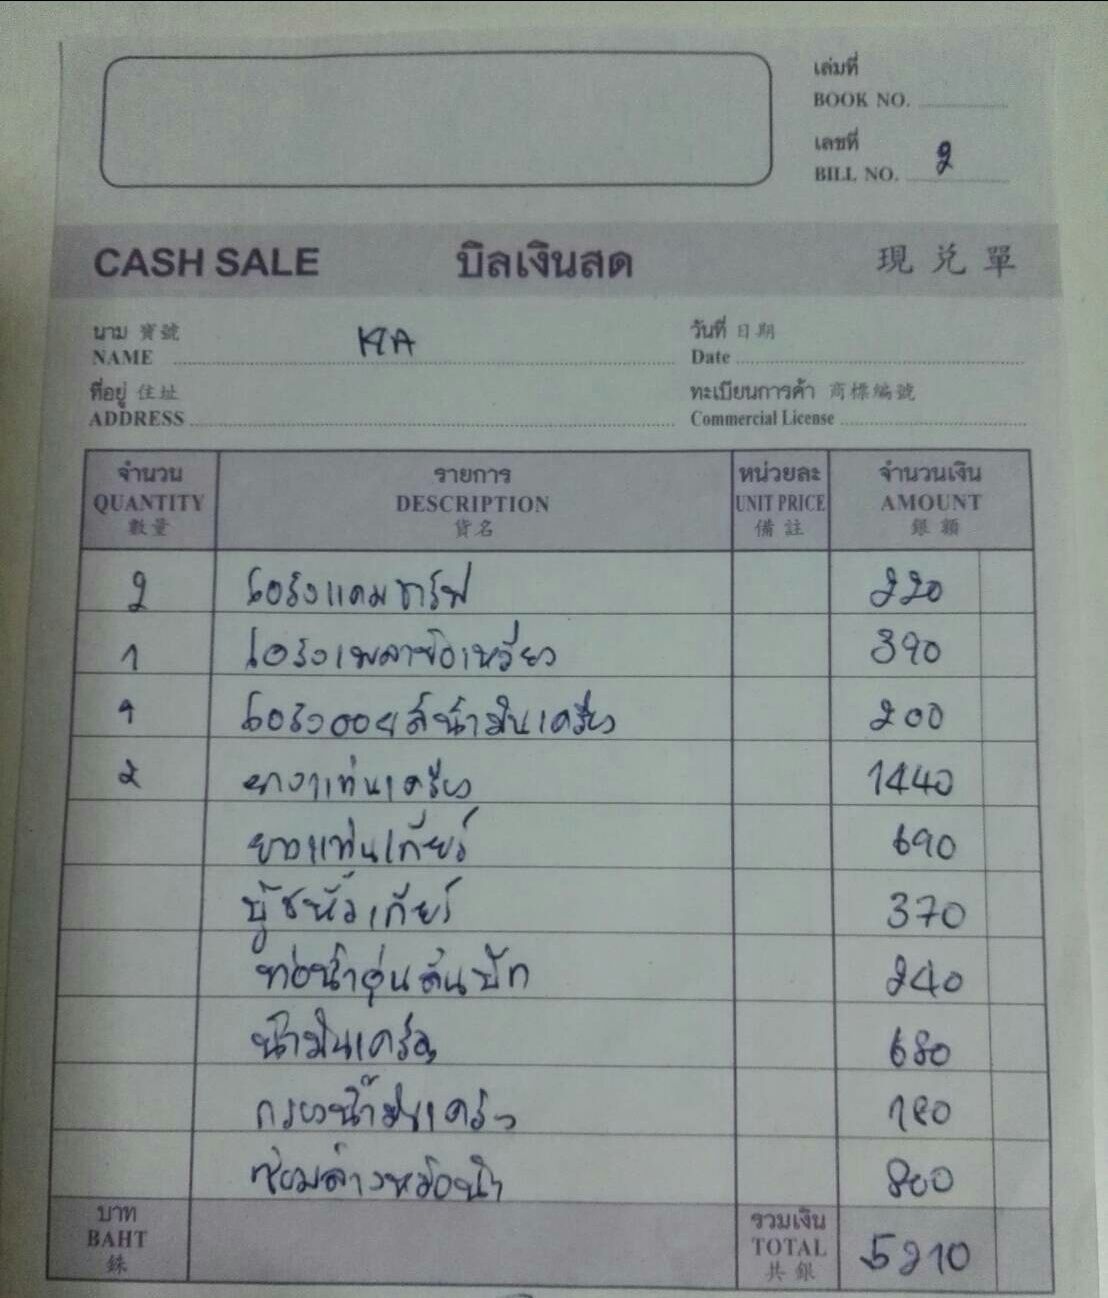 เล่มที่
BOOK NO.
เลขที่
BILL NO. 2
CASH SALE บิลเงินสด 現兌單
นาม 寶號
NAME KIA
วันที่ 日期
Date
ที่อยู่ 住址
ADDRESS
ทะเบียนการค้า 商標編號
Commercial License
จำนวน รายการ หน่วยละ จำนวนเงิน
QUANTITY DESCRIPTION UNIT PRICE AMOUNT
數量 貨名 備註 銀額
2 โอริงแคมชาร์ฟ 220
1 โอริงเพลาข้อเหวี่ยง 390
1 โอริงออยล์น้ำมันเครื่อง 200
2 ยางแท่นเครื่อง 1440
ยางแท่นเกียร์ 690
บู๊ชหัวเกียร์ 370
ท่อน้ำอุ่นตีนปีก 240
น้ำมันเครื่อง 680
กรองน้ำมันเครื่อง 180
ซ่อมล้างหม้อน้ำ 800
บาท รวมเงิน
BAHT TOTAL 5210
銖 共銀